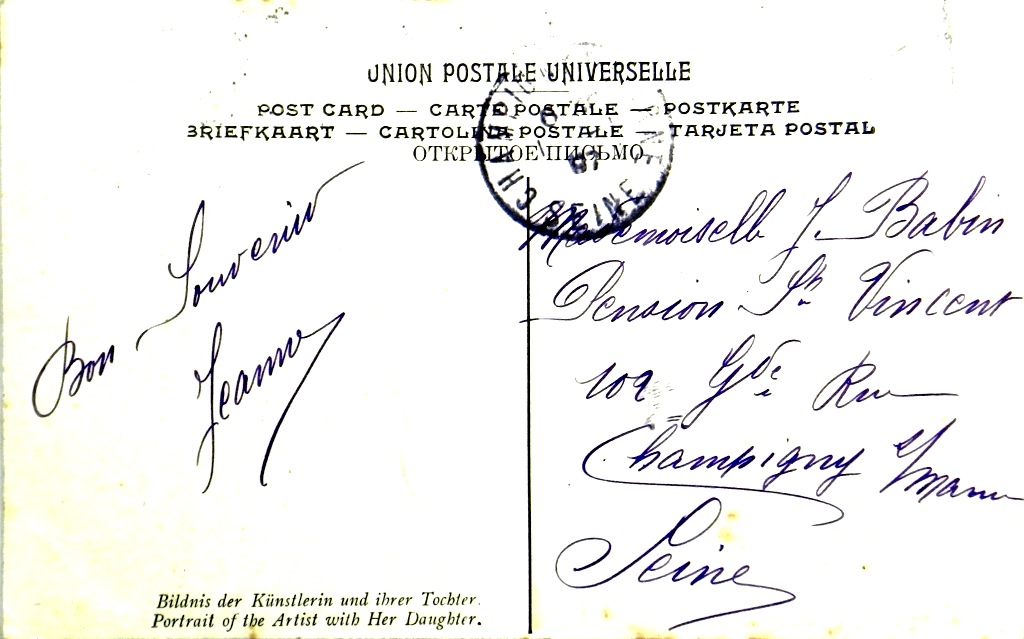 UNION POSTALE UNIVERSELLE
POST CARD — CARTE POSTALE — POSTKARTE
BRIEFKAART — CARTOLINA POSTALE — TARJETA POSTAL
ОТКРЫТОЕ ПИСЬМО
Bon Souvenir
Jeanne
Mademoiselle J. Babin
Pension St Vincent
109 Gde Rue
Champigny s/marne
Seine
Bildnis der Künstlerin und ihrer Tochter.
Portrait of the Artist with Her Daughter.